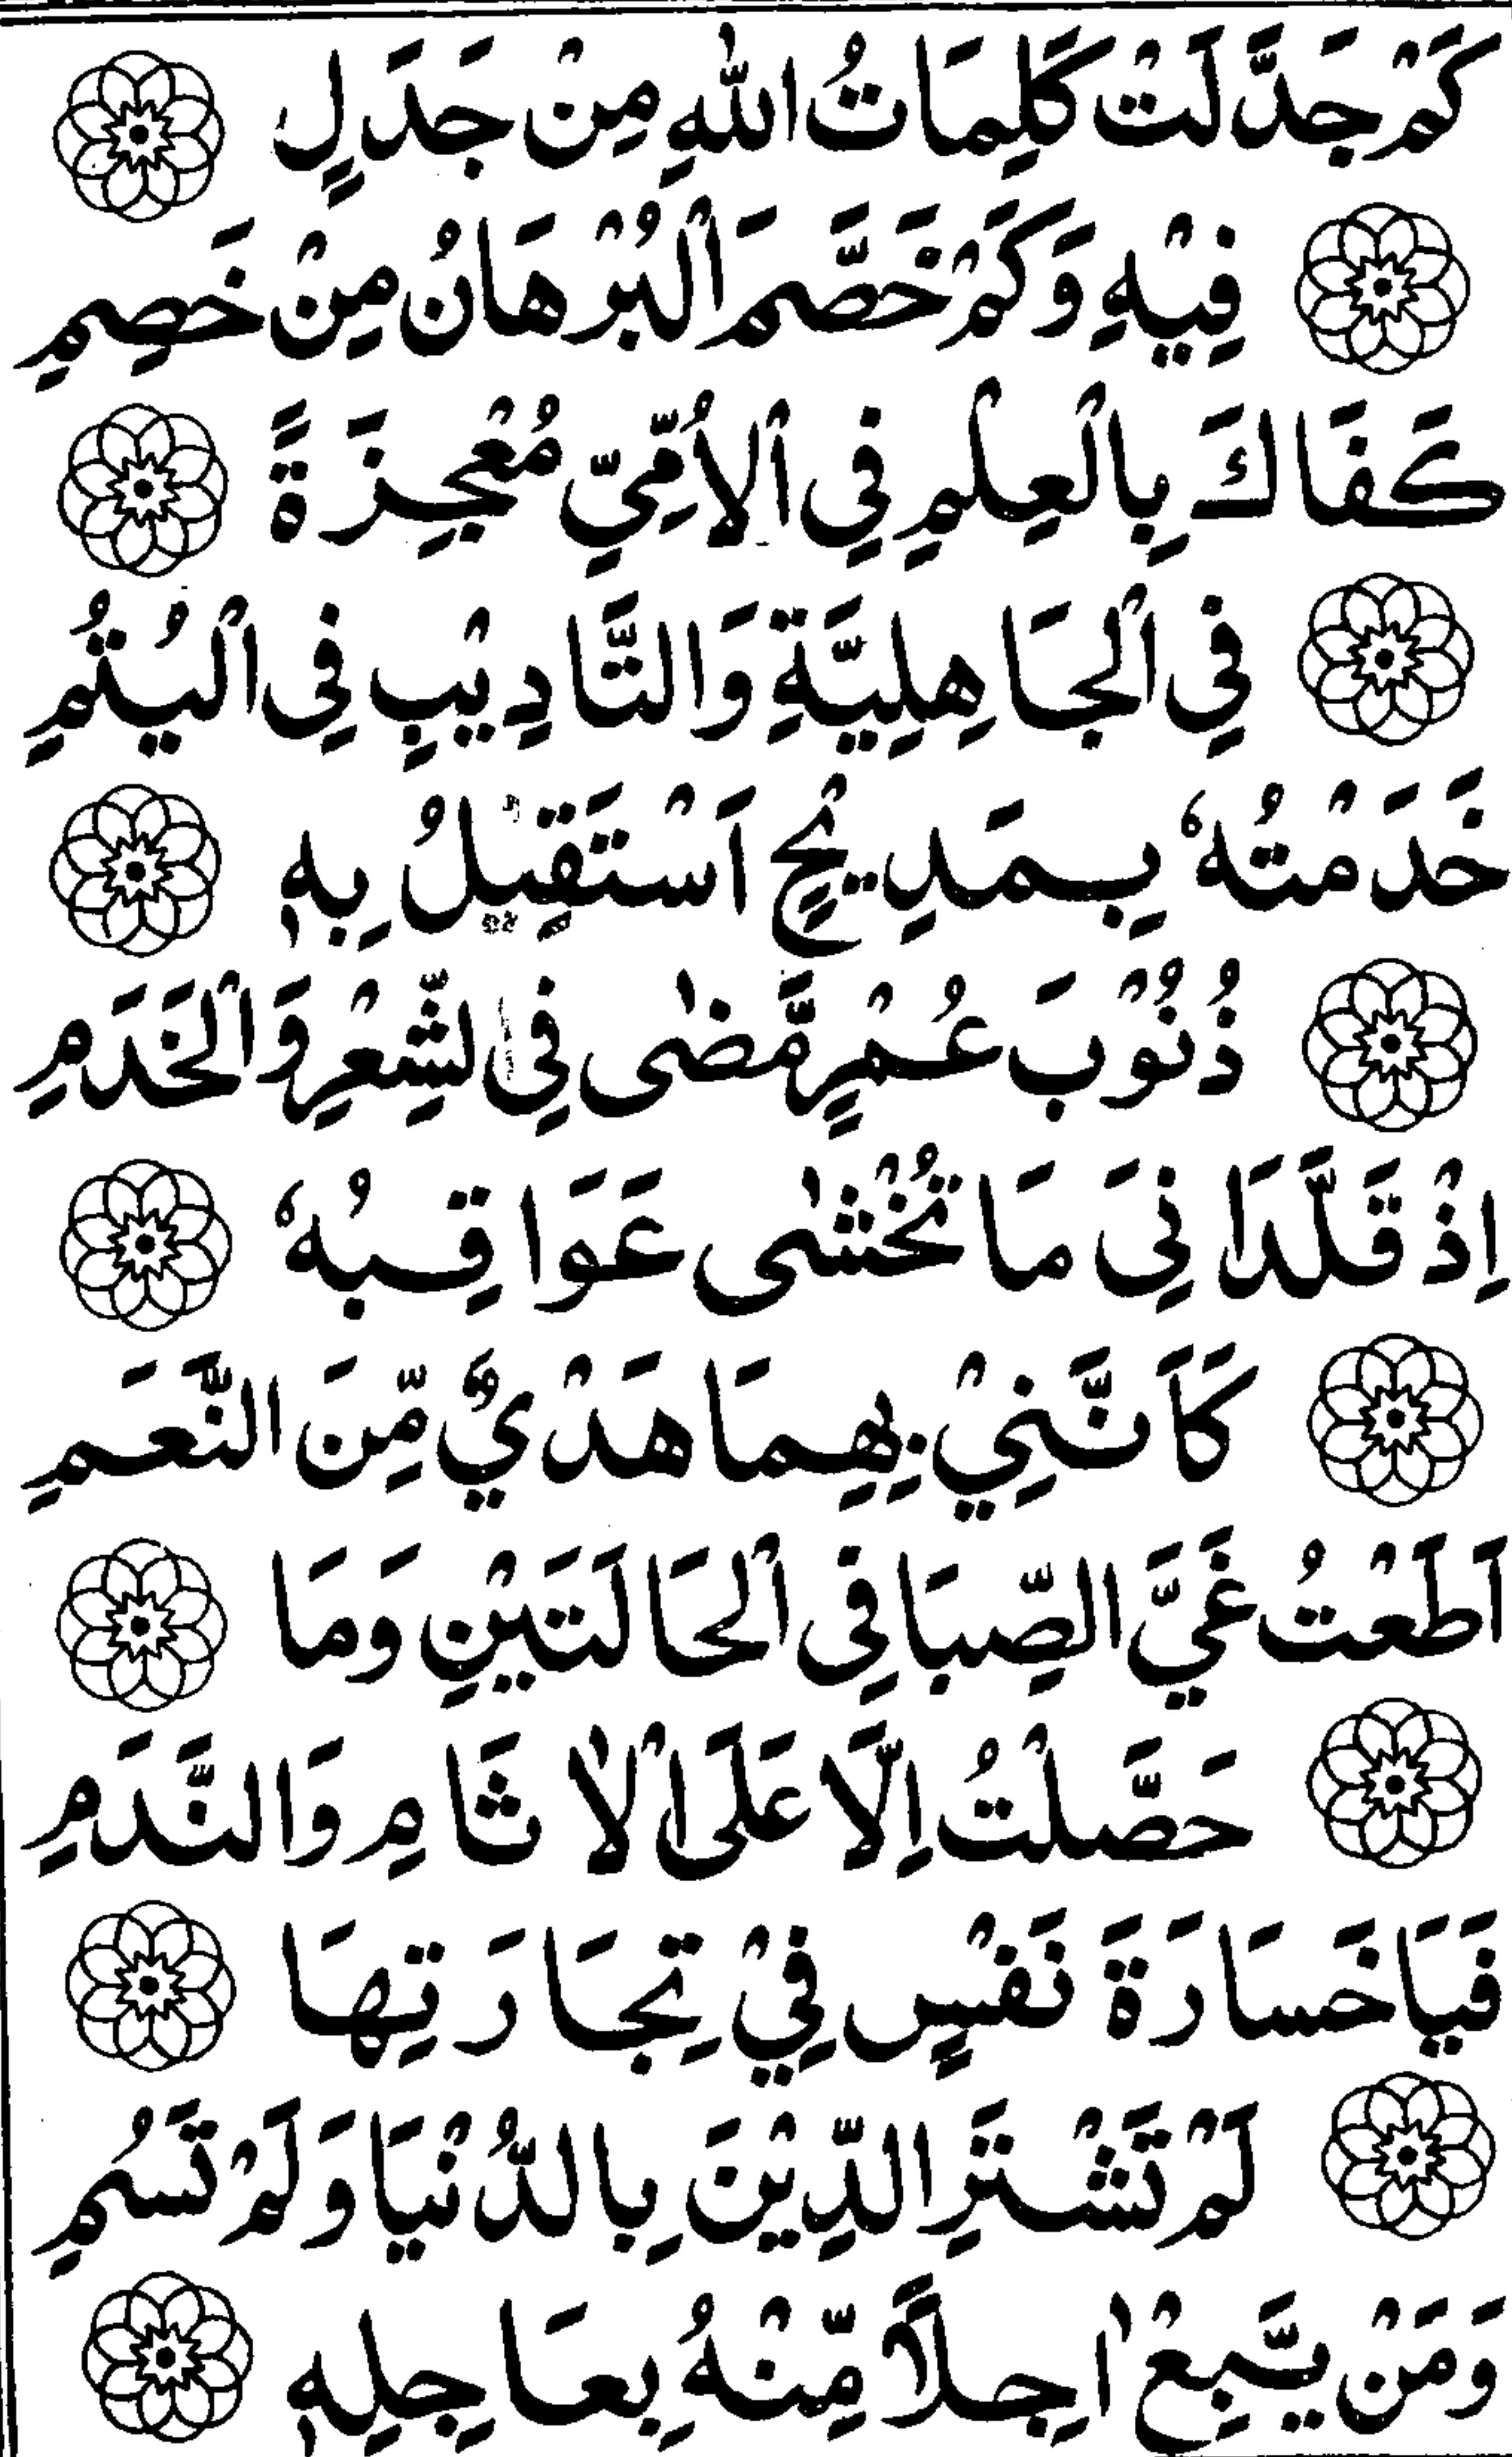 كَمْ جَدَّلَتْ كَلِمَاتُ اللّٰهِ مِنْ جَدَلٍ
فِيْهِ وَكَمْ خَصَّمَ الْبُرْهَانُ مِنْ خَصِمِ
كَفَاكَ بِالْعِلْمِ فِي الْاُمِّيِّ مُعْجِزَةً
فِي الْجَاهِلِيَّةِ وَالتَّادِيْبِ فِي الْيُتُمِ
خَدَمْتُهٗ بِمَدِيْحٍ اَسْتَقِيْلُ بِهٖ
ذُنُوْبَ عُمْرٍ مَّضٰى فِي الشِّعْرِ وَالْخَدَمِ
اِذْ قَلَّدَانِيَ مَا تُخْشٰى عَوَاقِبُهٗ
كَاَنَّنِيْ بِهِمَا هَدْيٌ مِّنَ النَّعَمِ
اَطَعْتُ غَيَّ الصِّبَا فِي الْحَالَتَيْنِ وَمَا
حَصَّلْتُ اِلَّا عَلَى الْاٰثَامِ وَالنَّدَمِ
فَيَا خَسَارَةَ نَفْسٍ فِيْ تِجَارَتِهَا
لَمْ تَشْتَرِ الدِّيْنَ بِالدُّنْيَا وَلَمْ تَسُمِ
وَمَنْ يَّبِعْ اٰجِلًا مِّنْهُ بِعَاجِلِهٖ